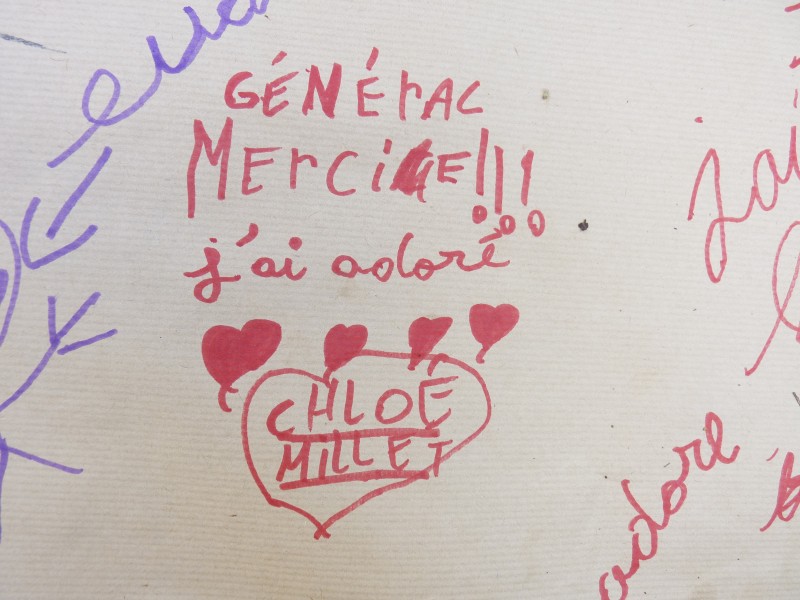 GÉNÉrAC
MErCiE!!!
j'ai adoré
CHLOÉ
MILLET
j'ai
adore